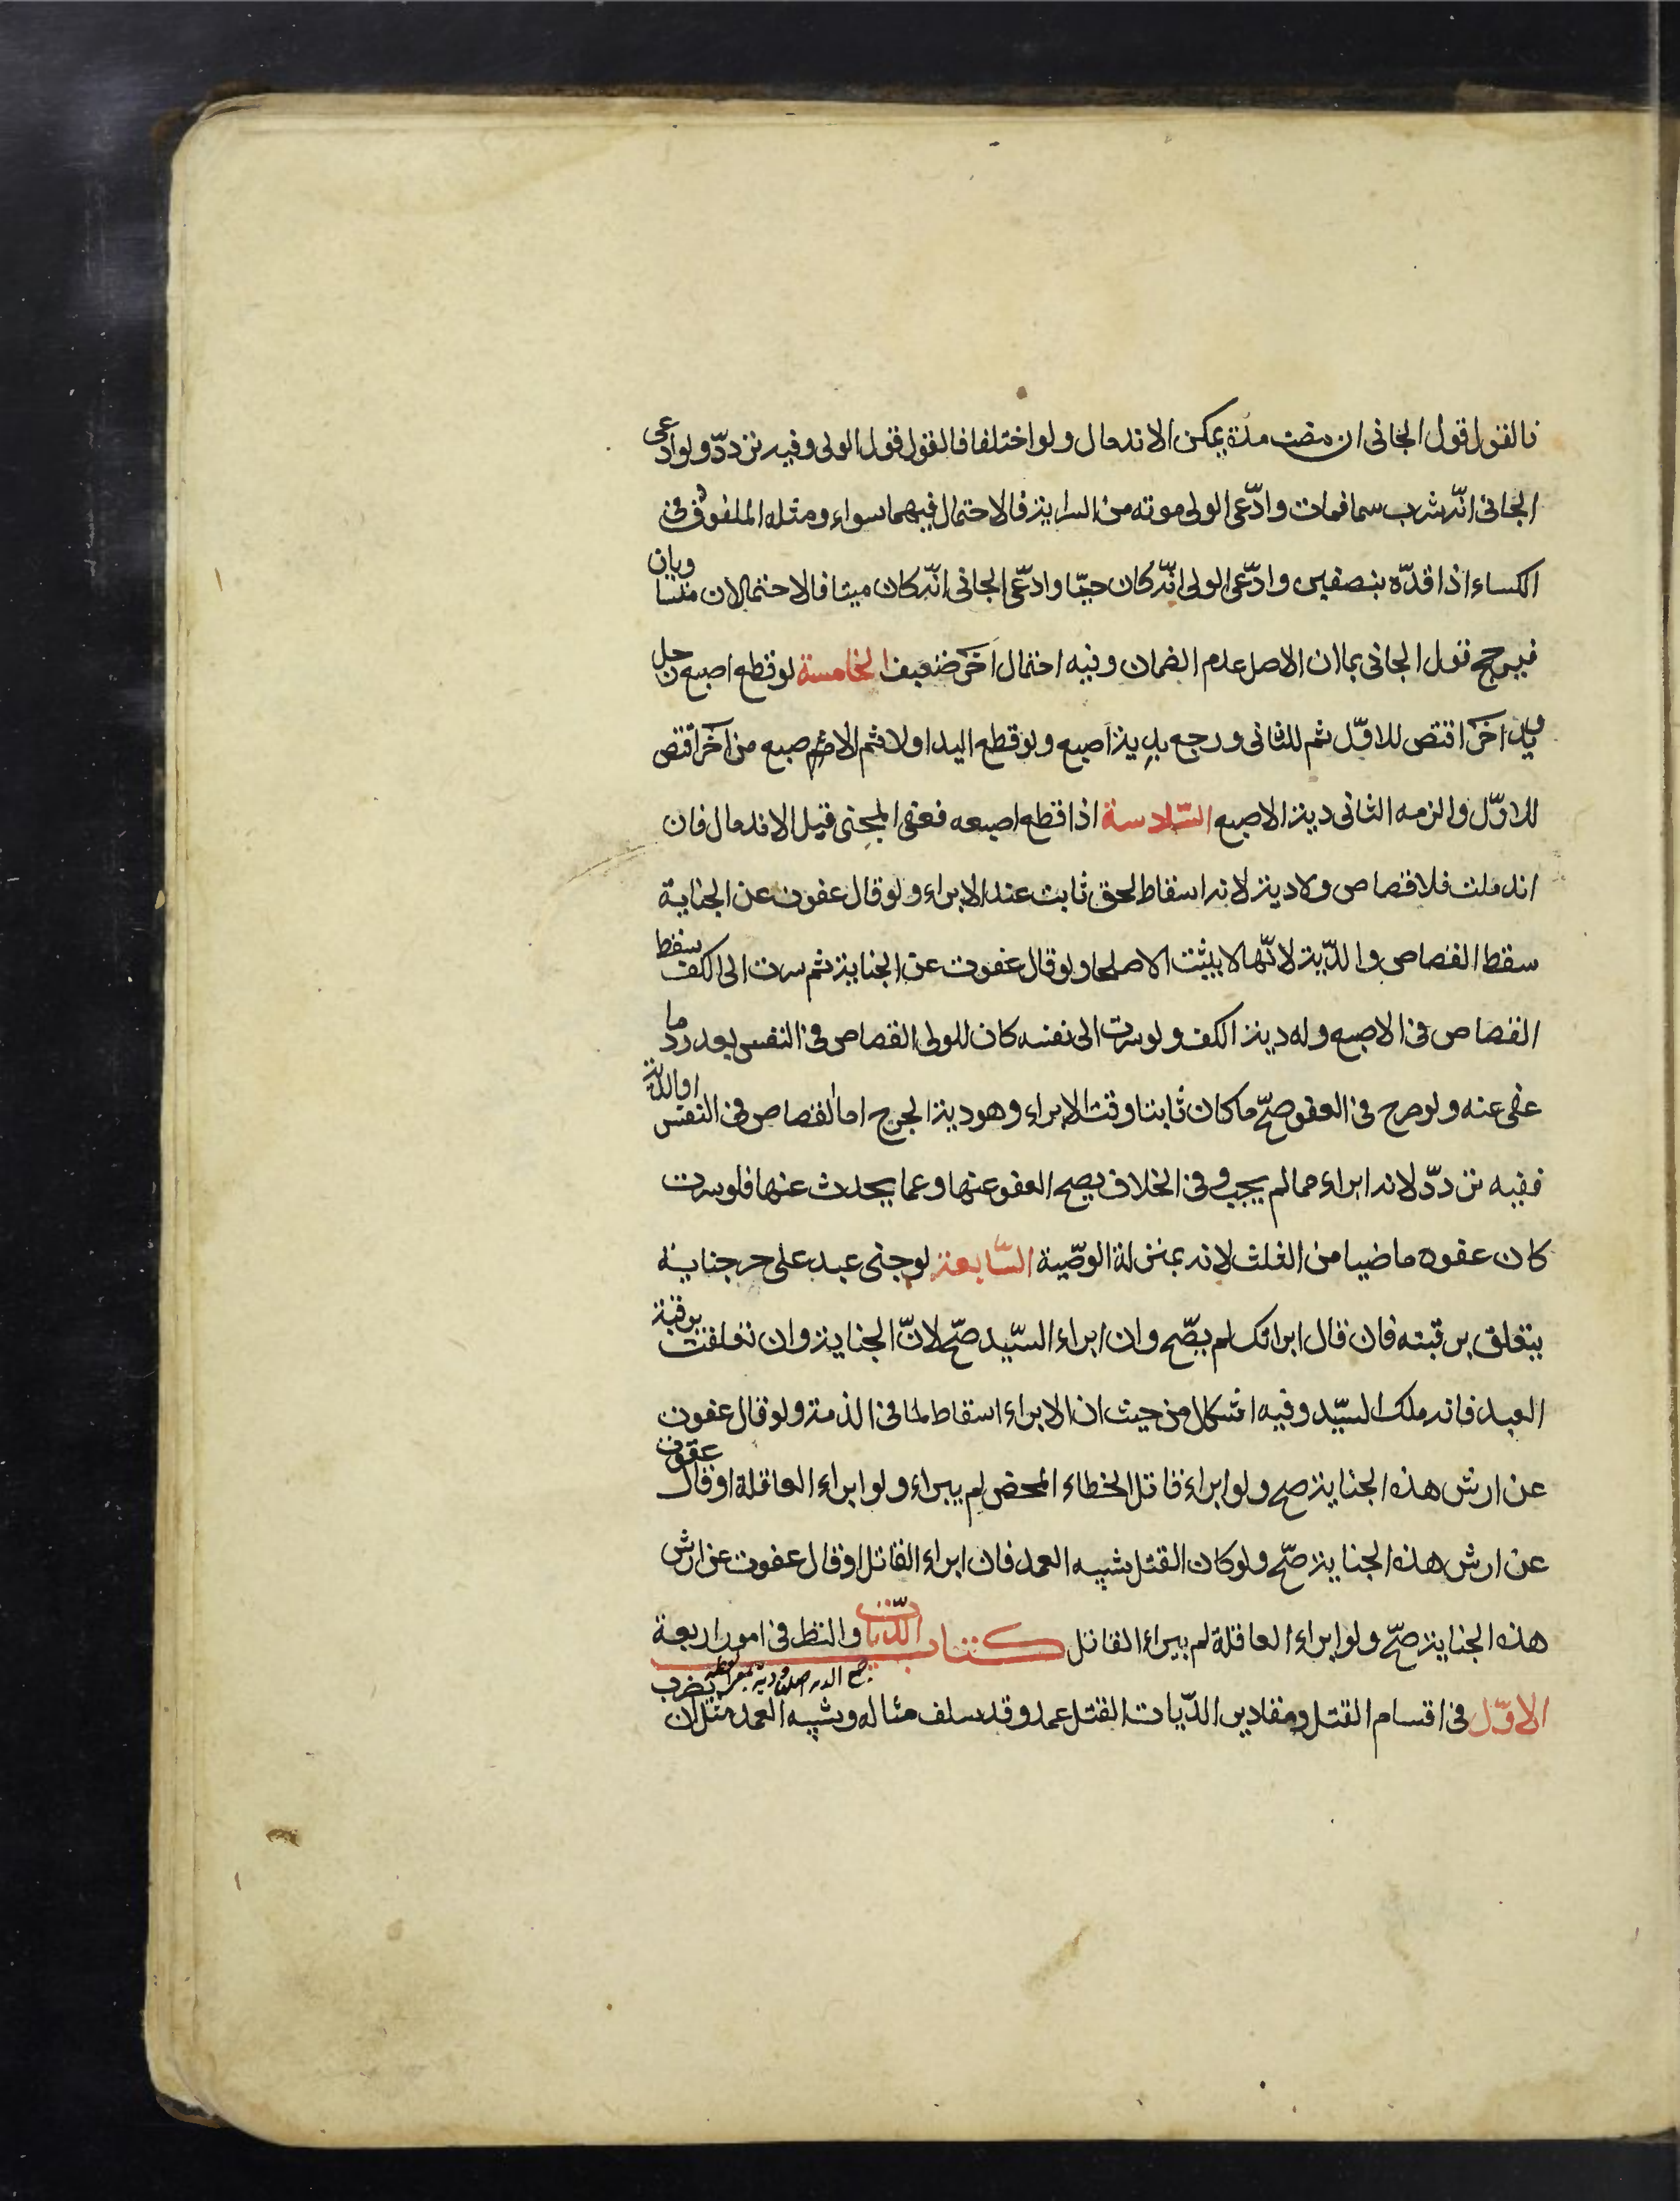 فالقول قول الجانى ان مضت مدة يمكن الاندمال ولو اختلفا فالقول قول الولى وفيه تردّد ولو ادعى
الجانى انّه شرب سما فمات وادّعى الولى موته من السراية فالاحتمال فيهما سواء ومثله الملفوف فى
الكساء اذا قدّه بنصفين وادّعى الولى انّه كان حيّا وادعّى الجانى انّه كان ميتا فالاحتمالان متساويان
فيرجح قول الجانى بما ان الاصل عدم الضمان وفيه احتمال آخر ضعيف الخامسة لو قطع اصبع رجل
ويد آخر اقتص للاوّل ثم للثانى ورجع بدية اصبع ولو قطع اليد اولا ثم الاصبع من آخر اقتص
للاوّل والزمه الثانى دية الاصبع السّادسة اذا قطع اصبعه فعفى المجنى قبل الاندمال فان
اندملت فلا قصاص ولا دية لانه اسقاط لحق ثابت عند الابراء ولو قال عفوت عن الجناية
سقط القصاص والدّية لانّها لا يثبت الا صلحا ولو قال عفوت عن الجناية ثم سرت الى الكف سقط
القصاص فى الاصبع وله دية الكف ولو سرت الى نفسه كان للولى القصاص فى النفس بعد رد ما
عفى عنه ولو صرح فى العفو صحّ ما كان ثابتا وقت الابراء وهو دية الجرح اما القصاص فى النفس او الدية
ففيه تردّد لانه ابراء مما لم يجب وفى الخلاف يصح العفو عنها وعما يحدث عنها فلو سرت
كان عفوه ماضيا من الثلث لانه بمنزلة الوصّية السّابعة لو جنى عبد على حر جناية
يتعلق برقبته فان قال ابراتك لم يصّح وان ابراء السّيد صحّ لانّ الجناية وان تعلقت برقبة
العبد فانه ملك السّيد وفيه اشكال من حيث ان الابراء اسقاط لما فى الذمة ولو قال عفوت
عن ارش هذه الجناية صح ولو ابراء قاتل الخطاء المحض لم يبراء ولو ابراء العاقلة او قال عفوت
عن ارش هذه الجناية صحّ ولو كان القتل شبيه العمد فان ابراء القاتل او قال عفوت عن ارش
هذه الجناية صحّ ولو ابراء العاقلة لم يبراء القاتل كتاب الدّيات والنظر فى امور اربعة
الاوّل فى اقسام القتل ومقادير الدّيات القتل عمد وقد سلف مثاله وشبيه العمد مثل ان يضرب